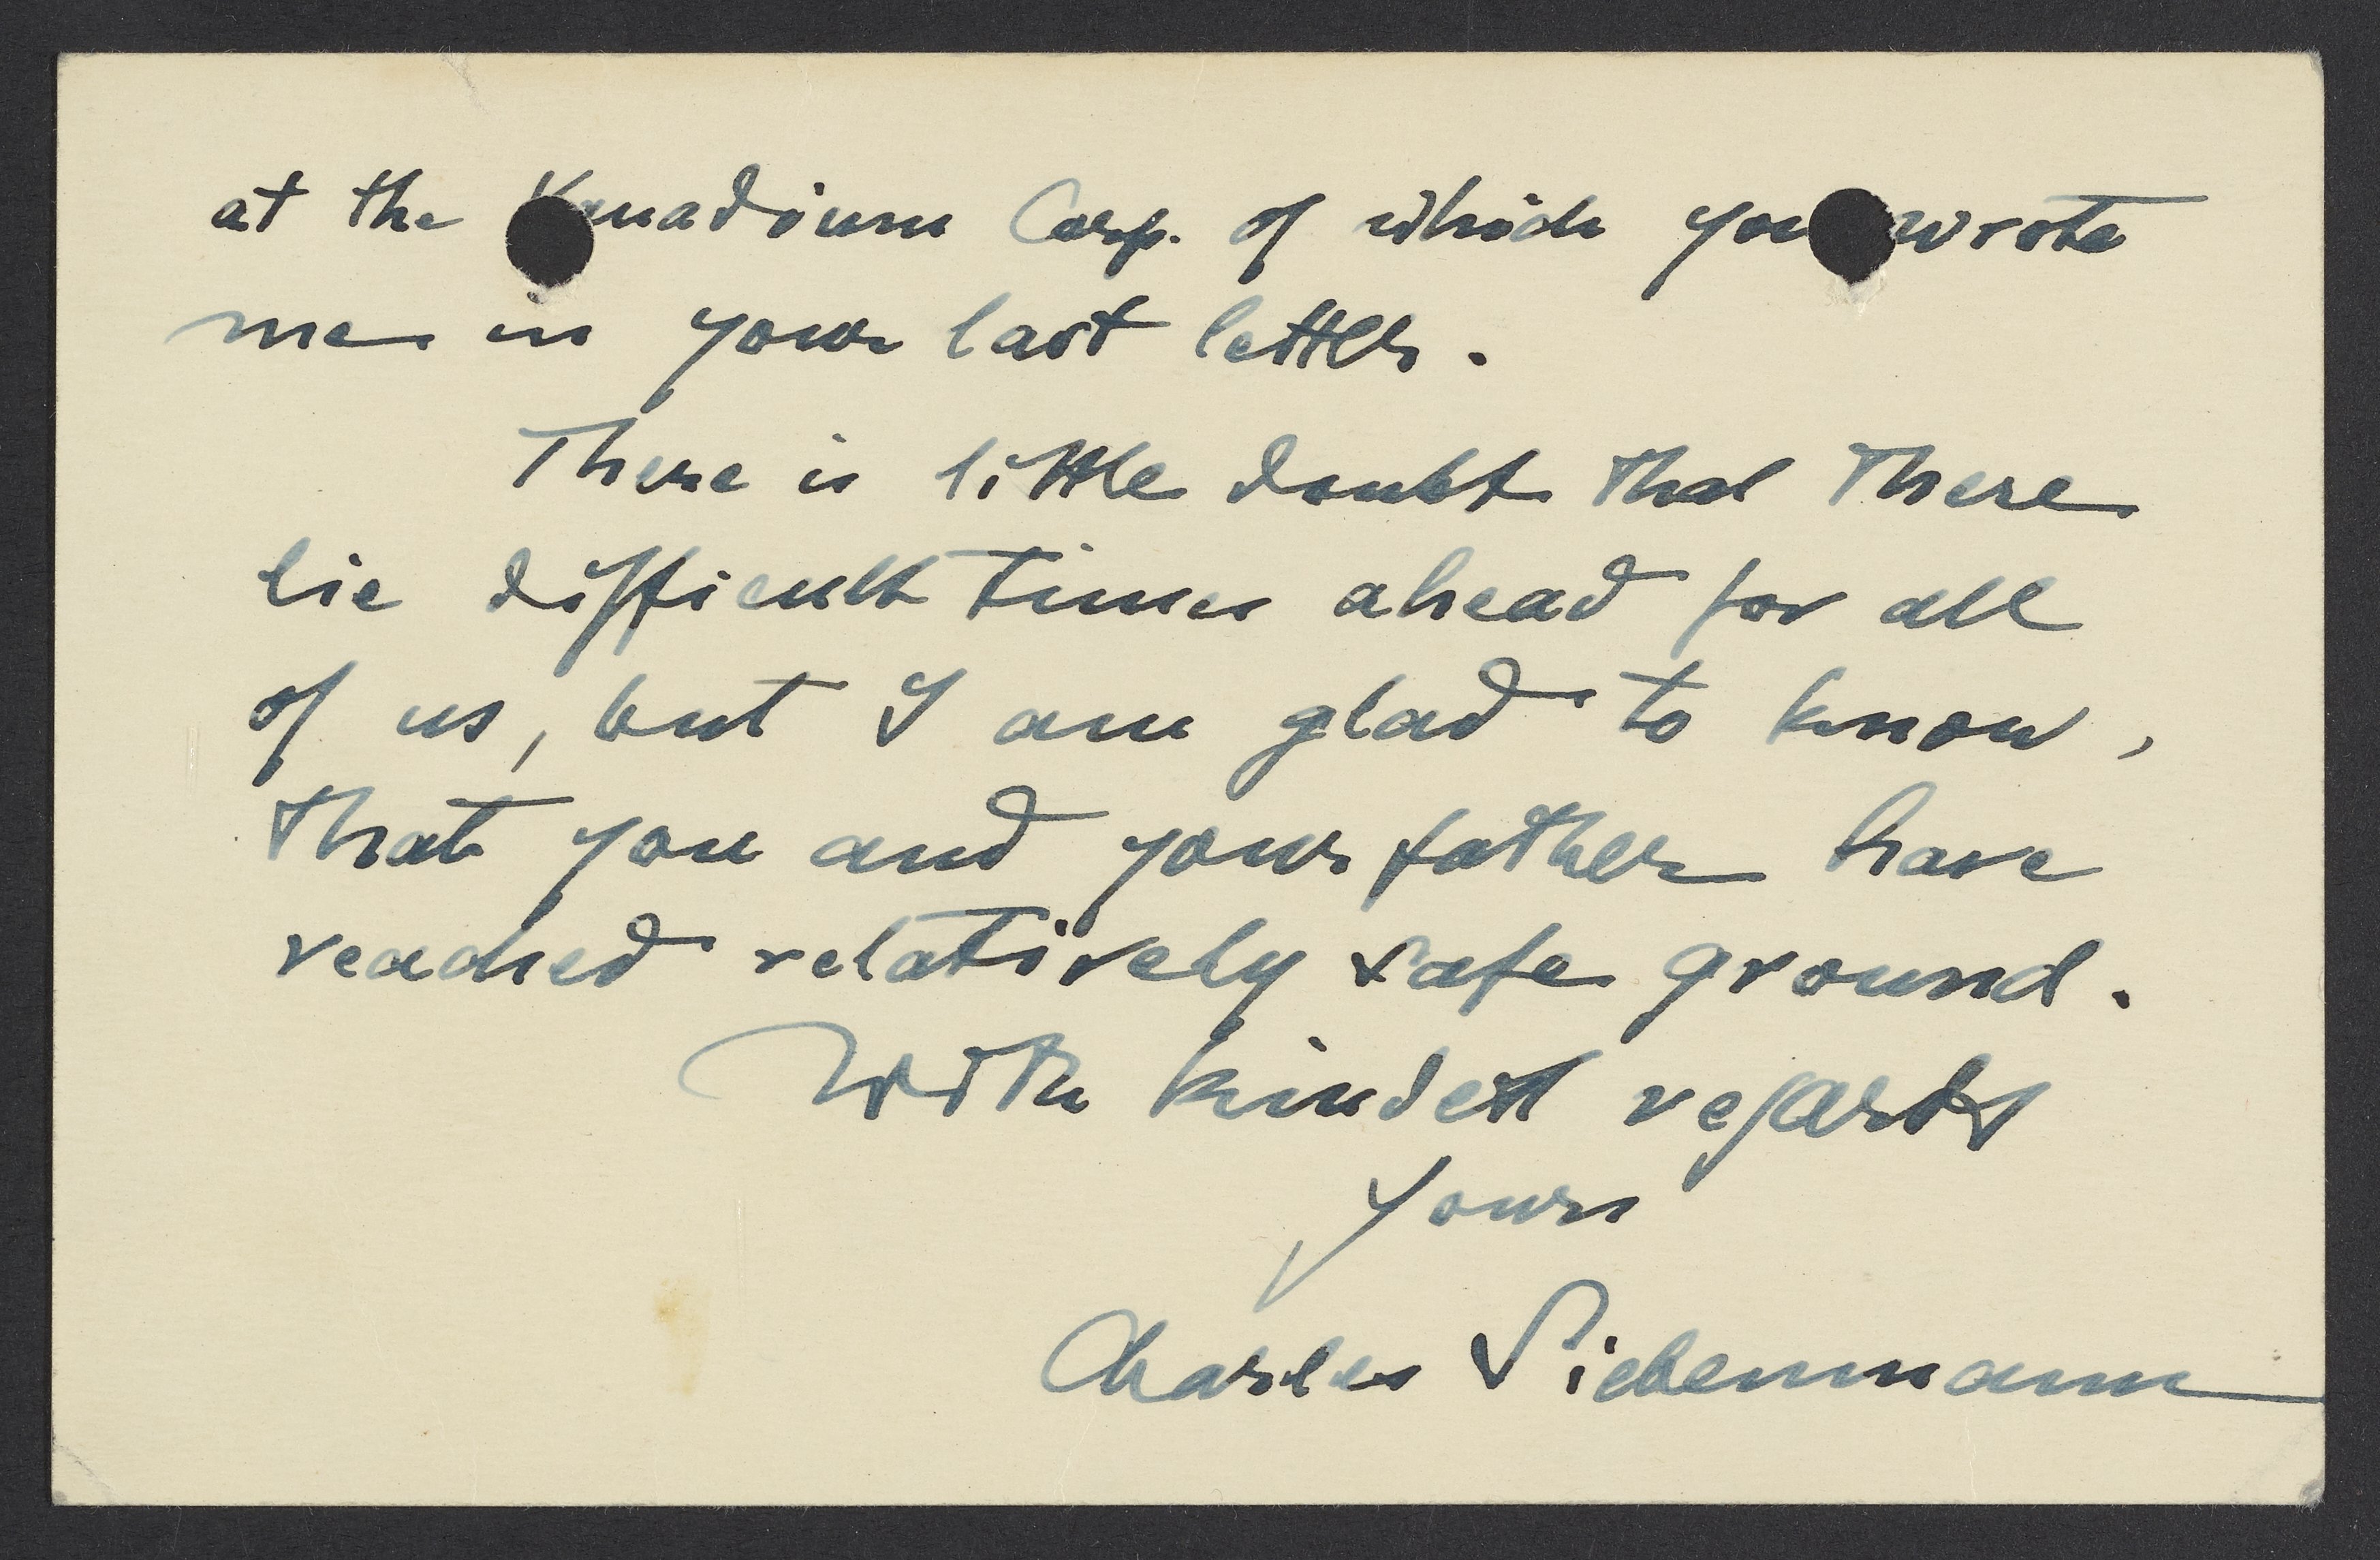 at the Vanadium Corp. of which you wrote
me in your last letter.
There is little doubt that there
lie difficult times ahead for all
of us, but I am glad to know,
that you and your father have
reached relatively safe ground.
With kindest regards
Yours
Charles Siebenmann